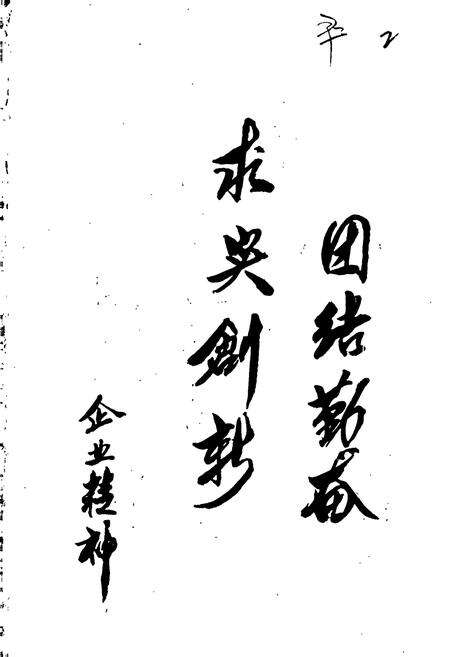 2
团结勤奋
求实創新
企业精神